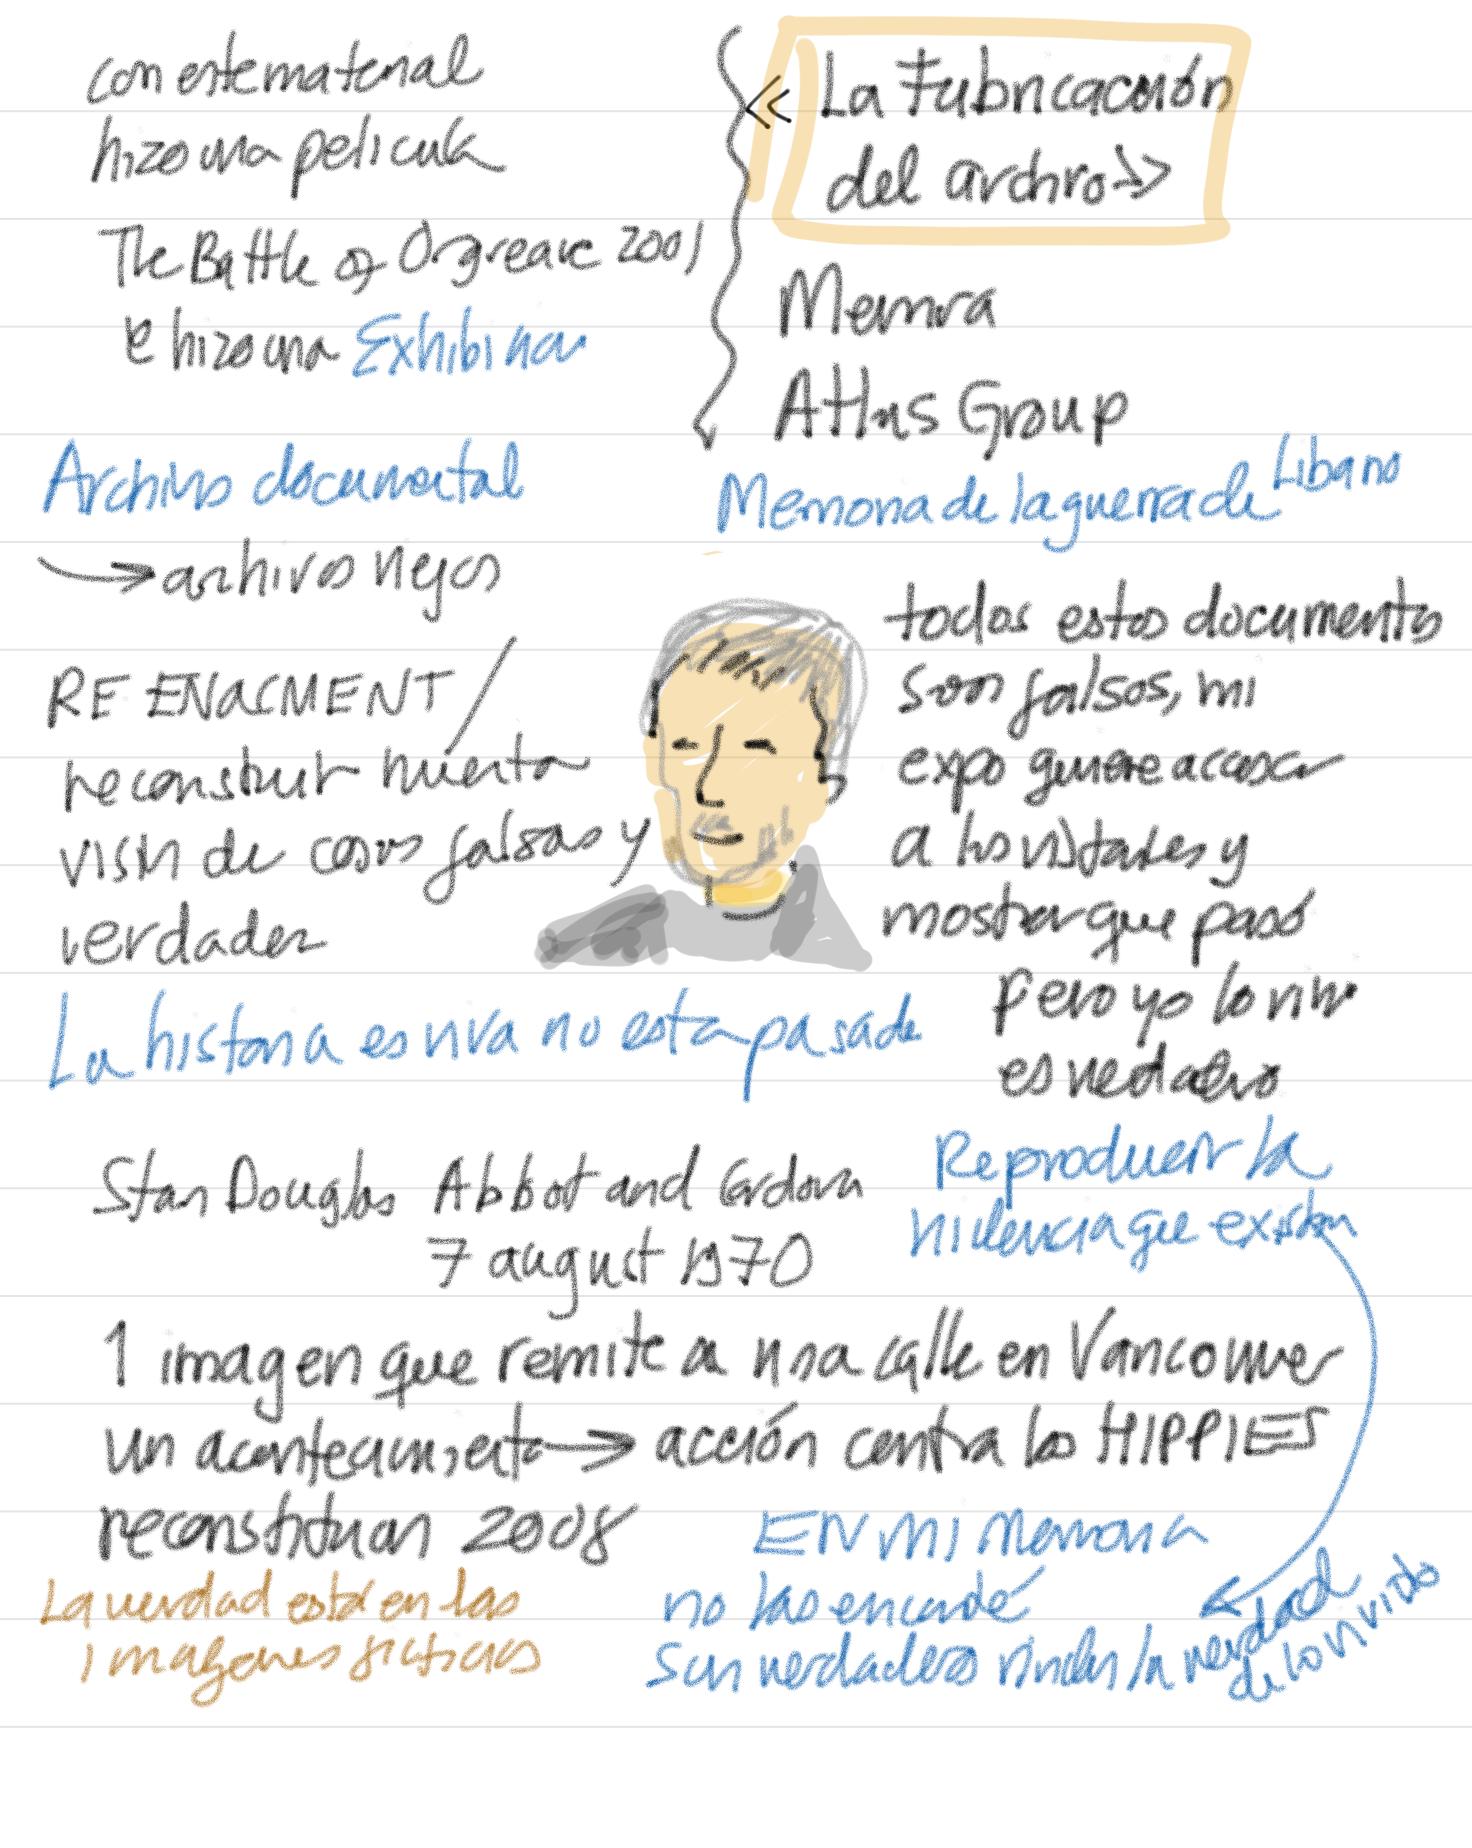 con este material
hizo una pelicula
The Battle of Orgreave 2001
e hizo una Exhibicion
Archivo documental
→ archivos viejos
RE ENACMENT /
reconstruir nuestra
visin de cosas falsas y
verdader
« La Fabricación
del archivo »
Memoria
Atlas Group
Memoria de la guerra de Libano
todos estos documentos
son falsos, mi
expo genere acceso
a los visitantes y
mostrar que pasó
pero yo lo vivi
es verdadero
La historia es viva no esta pasada
Reproducir la
violencia que existen
Stan Douglas Abbot and Cordova
7 august 1970
1 imagen que remite a una calle en Vancouver
un acontecimiento → acción contra los HIPPIES
reconstituan 2008
La verdad está en las
imagenes ficticias
EN mi Memoria
no las encontré
Son verdaderos rinden la verdad
de lo vivido